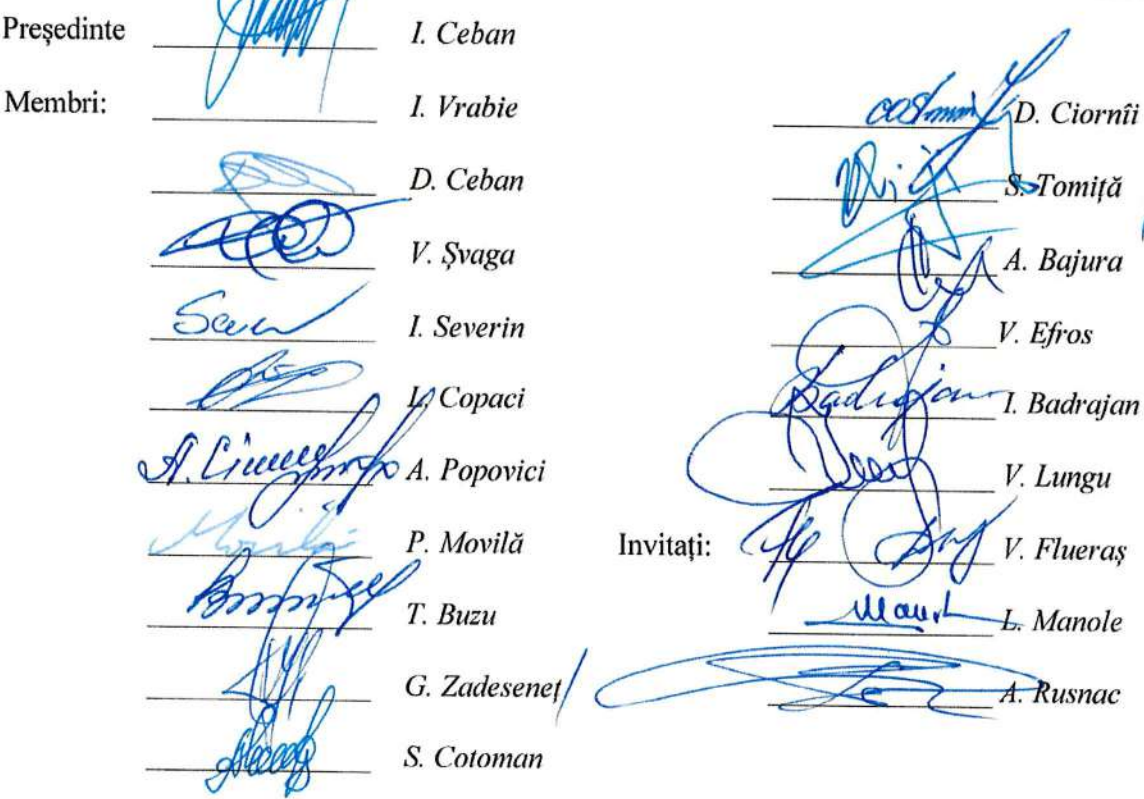 Președinte I. Ceban
Membri: I. Vrabie
D. Ceban
V. Șvaga
I. Severin
L. Copaci
A. Popovici
P. Movilă
T. Buzu
G. Zadeseneț
S. Cotoman
D. Ciornîi
S. Tomiță
A. Bajura
V. Efros
I. Badrajan
V. Lungu
Invitați: V. Flueraș
L. Manole
A. Rusnac